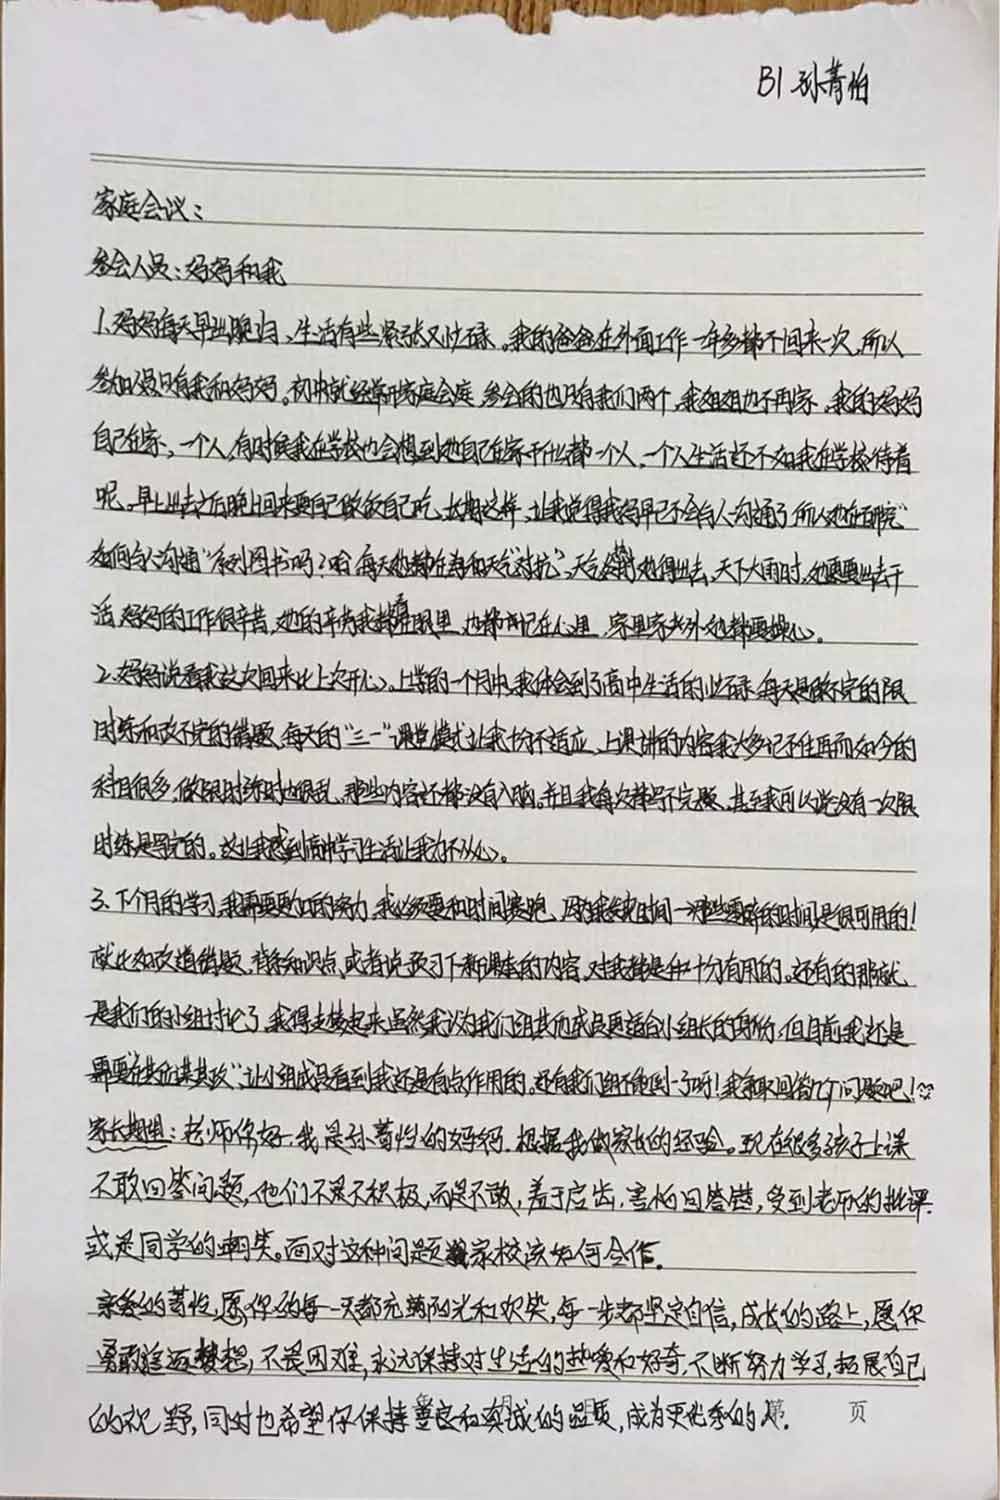 B1 孙菁怡
家庭会议：
参会人员：妈妈和我
1、妈妈每天早出晚归、生活有些紧张又忙碌。我的爸爸在外面工作一年多都不回来一次，所以
参加人员只有我和妈妈。初中就经常开家庭会庭，参会的也只有我们两个，我姐姐也不再家，我的妈妈
自己在家，一个人，有时候我在学校也会想到她自己在家干什么都一个人，一个人生活还不如我在学校待着
呢。早上出去之后晚上回来要自己做饭自己吃，长期这样，让我觉得我妈早已不会与人沟通了所以她在研究"
如何与人沟通"系列图书吗？哈 每天她都在为和天气"对抗"，天气 她得出去，天下大雨时，她要出去干
活，妈妈的工作很辛苦，她的辛劳我都看在眼里，也都牢记在心里，家里家外她都要操心。
2、妈妈说看我这次回来比上次开心。上学的一个月中，我体会到了高中生活的忙碌，每天是做不完的限
时练和改不完的错题，每天的"三一"课堂模式让我十分不适应，上课讲的内容我大多记不住再而如今的
科目很多，做限时练时也很乱，那些内容还都没有入脑。并且我每次都写不完题，甚至我可以说没有一次限
时练是写完的。这让我感到高中学习生活让我力不从心。
3、下个月的学习，我需要更加的努力，我必须要和时间赛跑，因为我 时间一那些零碎的时间，是很可用的！
就比如改道错题，背条知识点，或者说预习下新课本的内容，对我都是十分有用的。还有的那就
是我们的小组讨论了，我得支棱起来，虽然我认为我们组其他成员更适合小组长的身份，但目前，我还是
需要"在其位谋其政"，让小组成员看到我还是有点作用的。还有我们组不能倒一了呀！我争取回答几个问题吧！
家长期望：老师你好，我是孙菁怡的妈妈，根据我做家长的经验。现在很多孩子上课
不敢回答问题，他们不是不积极，而是不敢，羞于启齿，害怕回答错，受到老师的批评，
或是同学的嘲笑。面对这种问题家校该如何合作。
亲爱的菁怡，愿你的每一天都充满阳光和欢笑，每一步都坚定自信，成长的路上，愿你
勇敢追逐梦想，不畏困难，永远保持对生活的热爱和好奇，不断努力学习，拓展自己
的视野，同时也希望你保持善良和真诚的品质，成为更优秀的人。
第 页